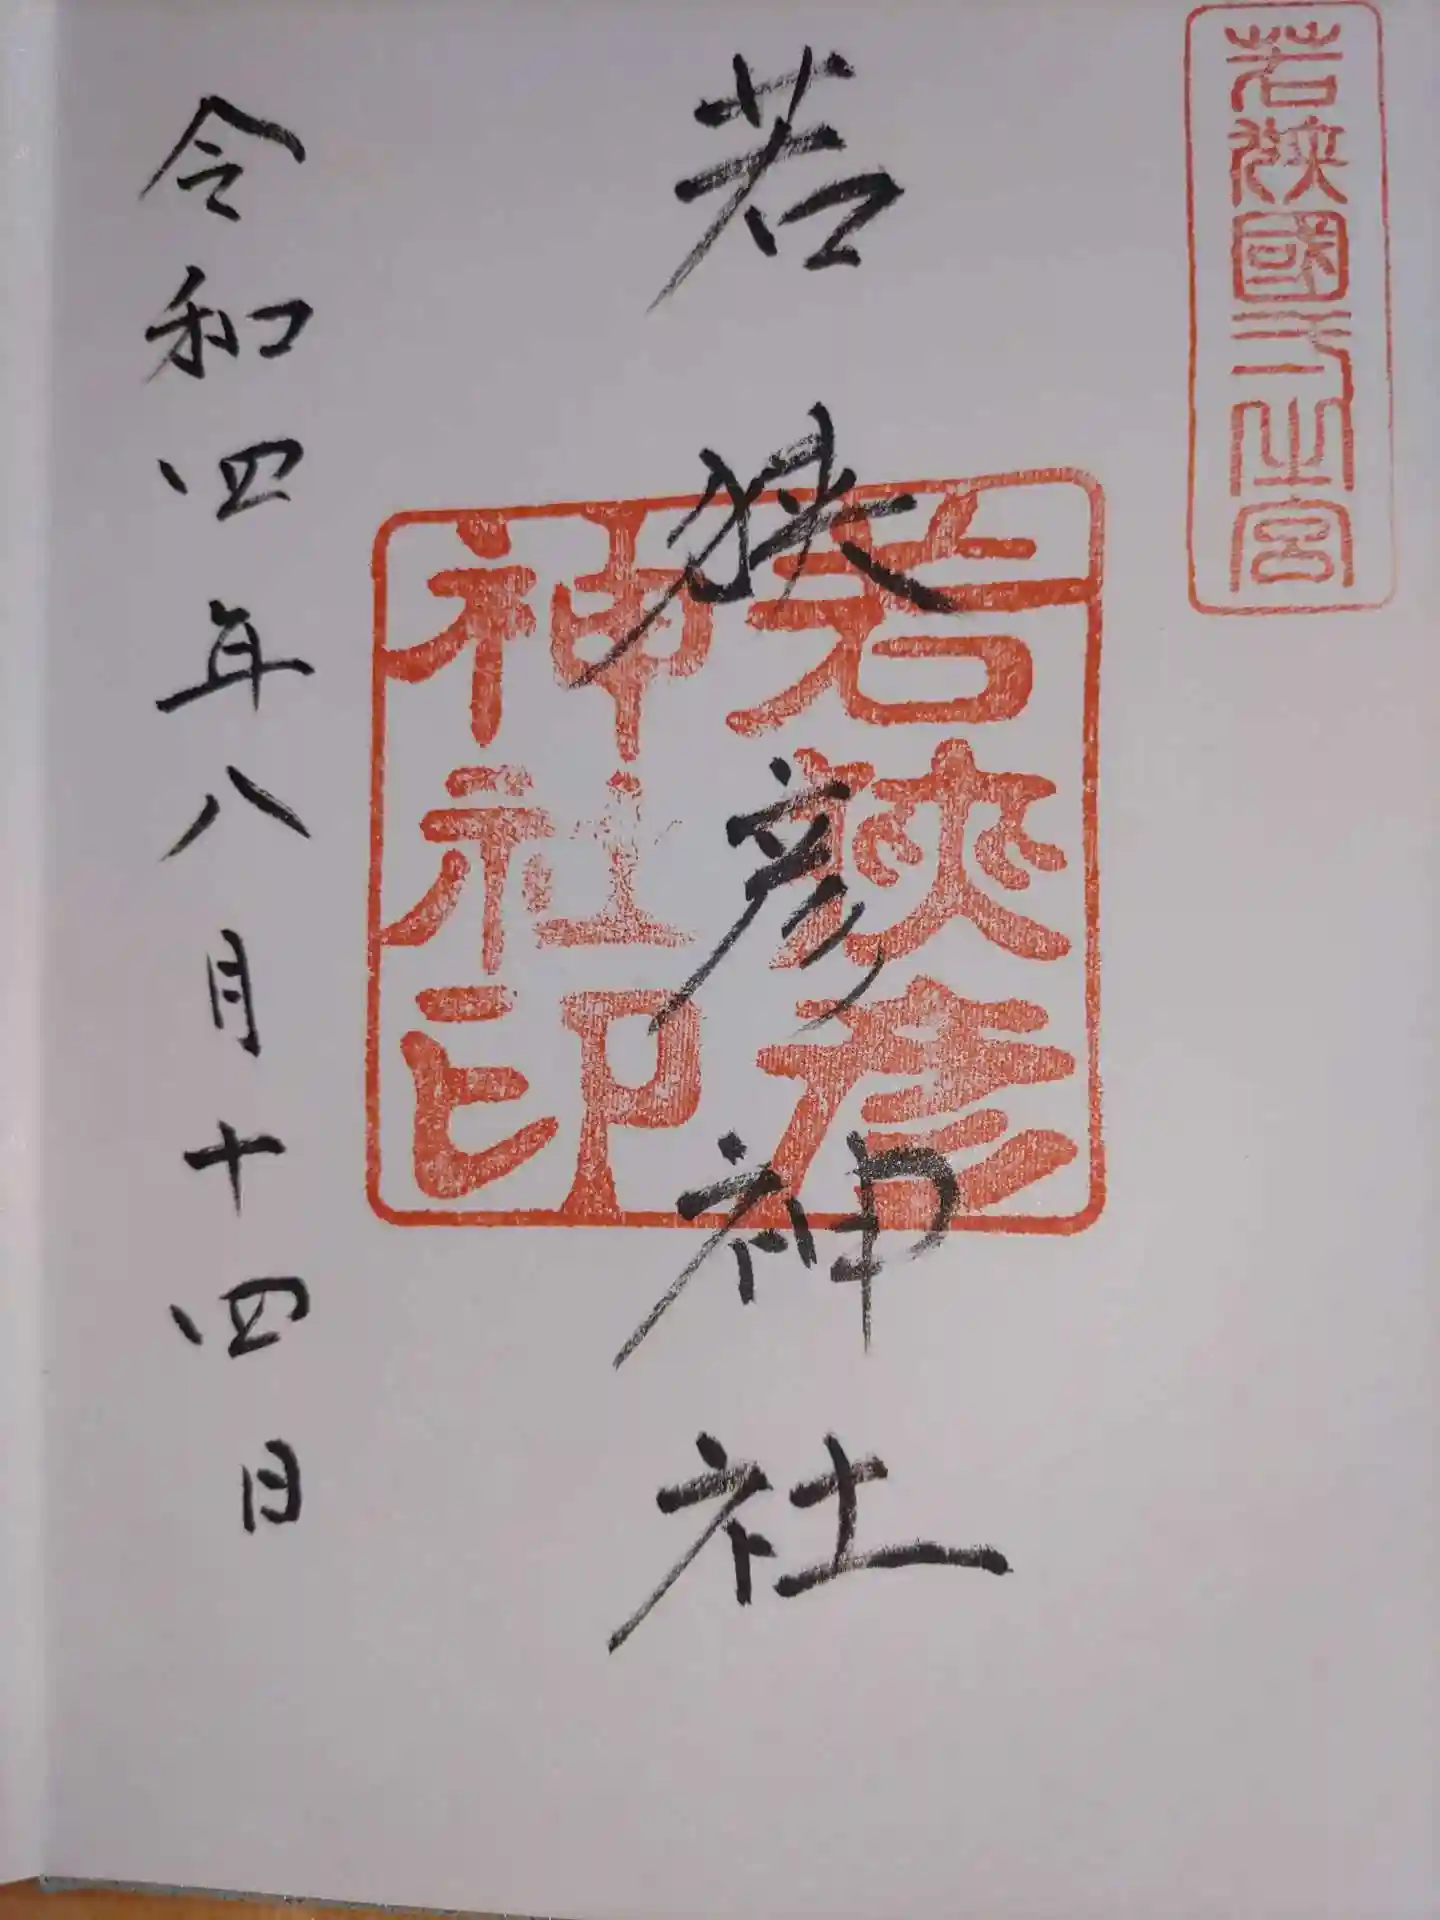 若狹國一之宮
若狭彦神社
若狹彦
神社印
令和四年八月十四日